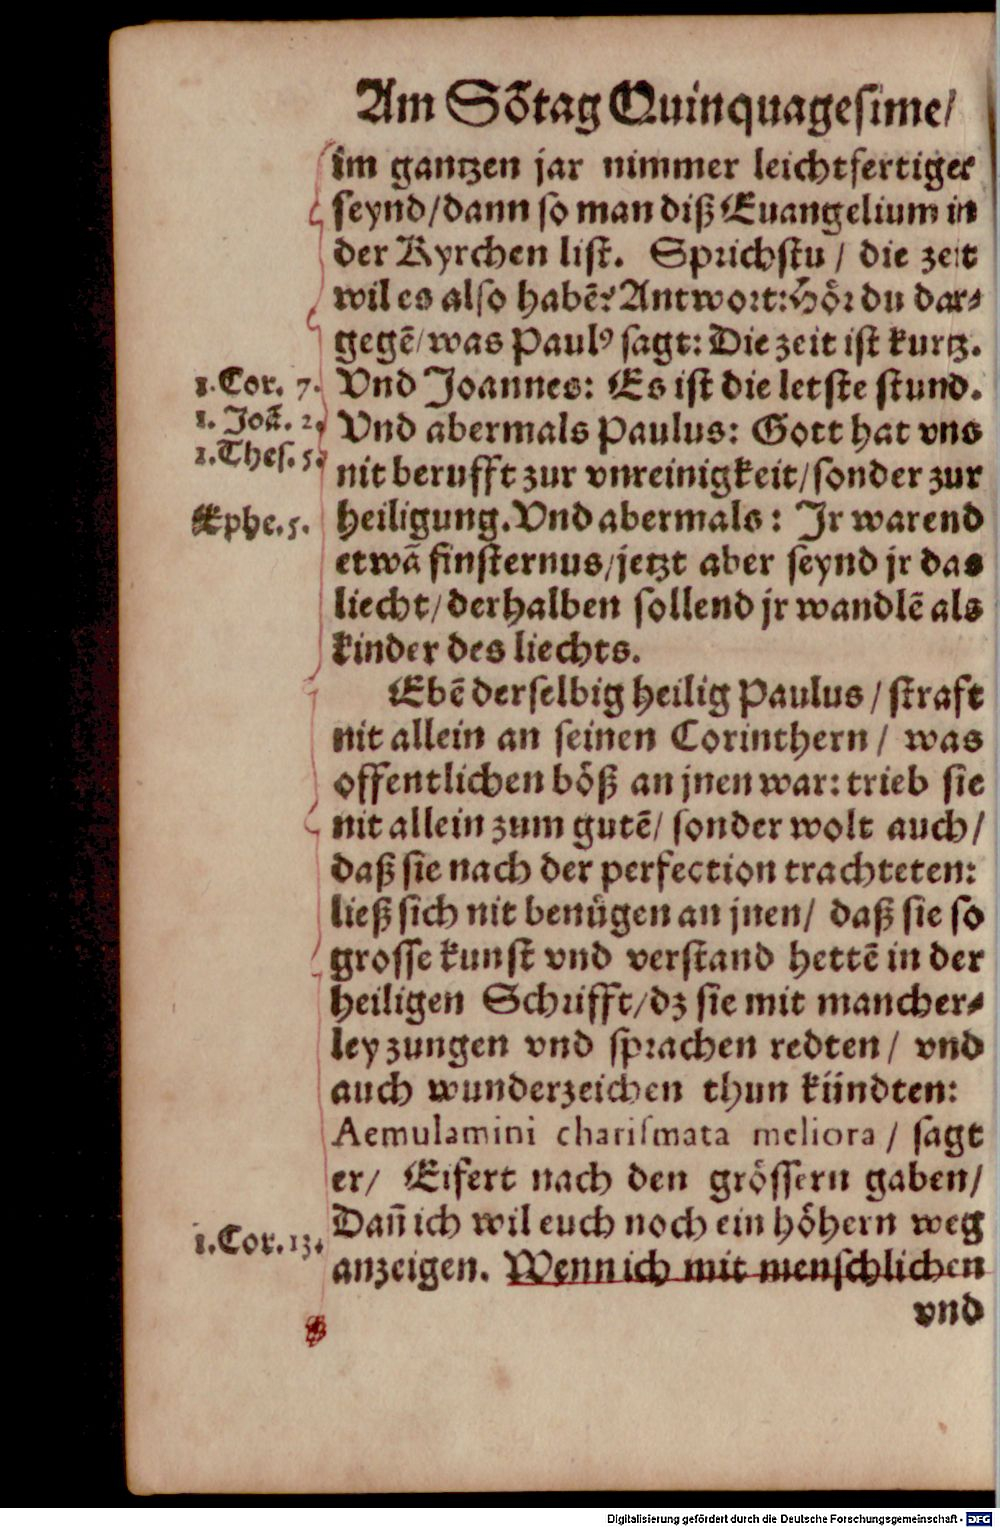 Am Sõtag Quinquagesime/
im gantzen jar nimmer leichtfertiger
seynd/dann so man diß Euangelium in
der Kyrchen list. Sprichstu / die zeit
wil es also habẽ? Antwort: Hör du dar⸗
gegẽ/was Paulꝰ sagt: Die zeit ist kurtz.
1. Cor. 7.
Vnd Joannes: Es ist die letste stund.
1. Joã. 2.
Vnd abermals Paulus: Gott hat vns
1. Thes. 5.
nit berufft zur vnreinigkeit/sonder zur
Ephe. 5.
heiligung. Vnd abermals: Jr warend
etwã finsternus/jetzt aber seynd jr das
liecht/derhalben sollend jr wandlẽ als
kinder des liechts.
Ebẽ derselbig heilig Paulus / straft
nit allein an seinen Corinthern / was
offentlichen böß an jnen war: trieb sie
nit allein zum gutẽ/ sonder wolt auch/
daß sie nach der perfection trachteten:
ließ sich nit benügen an jnen/ daß sie so
grosse kunst vnd verstand hettẽ in der
heiligen Schrifft/dz sie mit mancher⸗
ley zungen vnd sprachen redten / vnd
auch wunderzeichen thun kündten:
Aemulamini charismata meliora / sagt
er/ Eifert nach den grössern gaben/
Dañ ich wil euch noch ein höhern weg
1. Cor. 13.
anzeigen. Wenn ich mit menschlichen
vnd
Digitalisierung gefördert durch die Deutsche Forschungsgemeinschaft - DFG